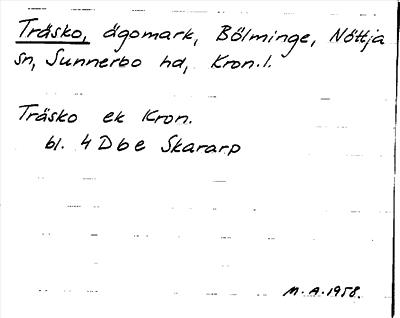 Träsko, ägomark, Bölminge, Nöttja
sn, Sunnerbo hd, Kron.l.
Träsko ek Kron.
bl. 4 D b e Skararp
M.A.1958.